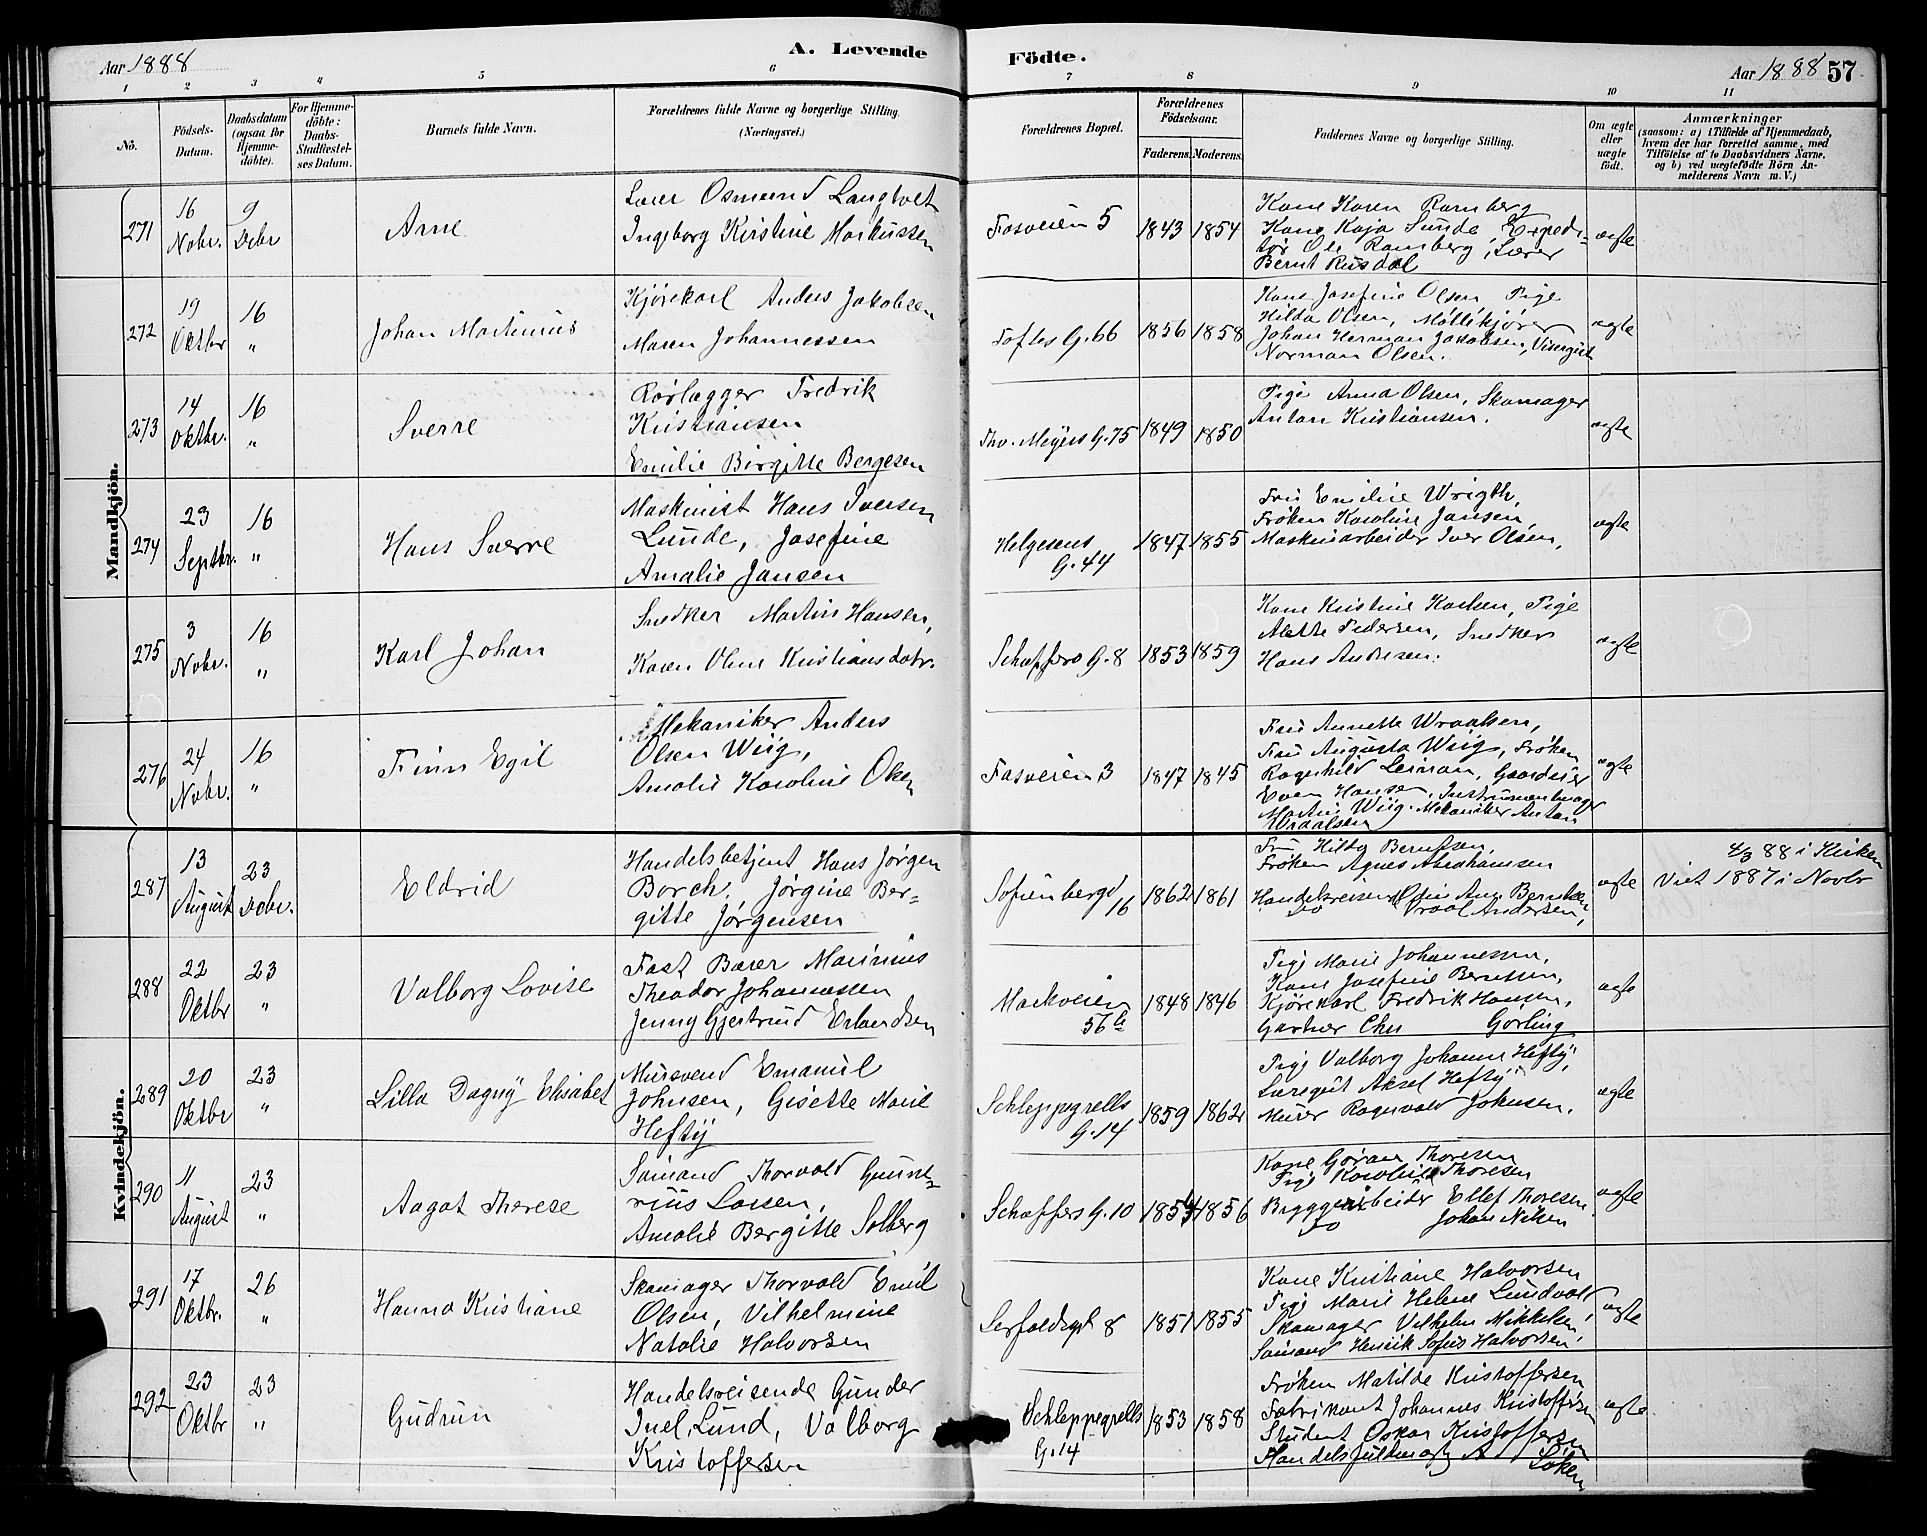 Aar 1888
A. Levende
Födte.
Aar 1888
57
1 2 3 4 5 6 7 8 9 10 11
No.
Födsels-
Datum.
Daabsdatum
(ogsaa for
Hjemme-
döbte).
For Hjemme-
döbte:
Daabs-
Stadfæstel-
ses Datum.
Barnets fulde Navn.
Forældrenes fulde Navne og borgerlige Stilling.
(Næringsvei.)
Forældrenes Bopæl.
Forældrenes
Födselsaar.
Faderens. Moderens.
Faddernes Navne og borgerlige Stilling.
Om ægte
eller
uægte
födt.
Anmærkninger
(saasom: a) i Tilfælde af Hjemmedaab,
hvem der har forrettet samme, med
Tilföielse af to Daabsvidners Navne,
og b) ved uægtefödte Börn An-
melderens Navn m. V.)
Mandkjön.
271
16
Nobr.
9
Debr
Arne
Osmund Langtvet
Ingeborg Kirstine Markussen
Fosveien 5
1843 1854
Kone Karen Ramberg
Kone Kaja Lunde Expedi-
tør Ole Ramberg, Lærer
Bernt Rusdal
ægte
272
19
Oktbr
16
"
Johan Martinius
Kjørekarl Anders Jakobsen
Maren Johannessen
Toftes G. 66
1856 1858
Kone Josefine Olsen Pige
Hilda Olsen, Møllekjører
Johan Herman Jakobsen, Visergut
Norman Olsen.
ægte
273
14
Oktbr.
16
"
Sverre
Rørlægger Fredrik
Kristiansen
Emilie Birgitte Bergesen
Thv. Meyers G. 75
1849 1850
Pige Anna Olsen, Skomager
Anton Kristiansen.
ægte
274
23
Septbr.
16
"
Hans Sverre
Maskinist Hans Iversen
Lunde, Josefine
Amalie Jansen
Helgesens
G. 44
1847 1855
Fru Emilie Wrigth,
Frøken Karoline Jansen,
Maskinarbeider Iver Olsen,
ægte
275
3
Nobr.
16
"
Karl Johan
Snedker Martin Hansen,
Karen Oline Kristiansdatr.
Schaffers G. 8
1853 1859
Kone Kristine Karlsen, Pige
Alette Pedersen, Snedker
Hans Andersen.
ægte
276
24
Nobr.
16
"
Finn Egil
Mekaniker Anders
Olsen Wiig,
Amalie Karoline Olsen
Fosveien 3
1847 1845
Fru Annette Wraalsen,
Fru Augusta Wiig, Frøken
Ragnhild Leiman, Gaardeier
Even Hansen, Instrumentmager
Martin Wiig. Mekaniker Anton
Wraalsen
ægte
Kvindekjön.
287
13
August
23
Debr.
Eldrid
Handelsbetjent Hans Jørgen
Borch. Jørgine Ber-
gitte Jørgensen
Sofienbergd
16
1862 1861
Fru Hilda Berntsen,
Frøken Agnes Abrahamsen
Handelsreisende Aug Berntsen
Do Andersen,
ægte
4/3 88 i Kirken
Viet 1887 i Novbr
288
22
Oktbr
23
"
Valborg Lovise
Fast Bærer Marinius
Theodor Johannessen
Jenny Gjertrud Erlandsen
Markveien
56 b
1848 1846
Pige Marie Johannessen,
Kone Josefine Berntsen,
Kjørekarl Fredrik Hansen,
Gartner Chr Görling
ægte
289
20
Oktbr
23
"
Lilla Dagny Elisabet
Mursvend Emanuel
Johnsen, Gisette Marie
Hefty
Schleppegrells
G. 14
1859 1862
Pige Valborg Johanne Hefty,
Læregut Aksel Hefty
Murer Ragnvald Johnsen.
ægte
290
11
August
23
"
Aagot Therese
Sømand Thorvald Gunne-
rius Larsen,
Amalie Bergitte Solberg
Schaffers G. 10
1854 1856
Kone Gøran Thoresen
Pige Karoline Thoresen
Bryggearbeider Ellef Thoresen
Do Johan Nilsen
ægte
291
17
Oktbr.
26
"
Hanna Kristiane
Skomager Thorvald Emil
Olsen, Vilhelmine
Natalie Halvorsen
8
1851 1855
Kone Kristiane Halvorsen
Pige Marie Helene Lundvall
Skomager Vilhelm Mikkelsen,
Sømand Henrik Sofus Halvorsen,
ægte
292
23
Oktbr
23
"
Gudrun
Handelsreisende Gunder
Juel Lund, Valborg
Kristoffersen
Schleppegrells
G. 14
1853 1858
Frøken Matilde Kristoffersen
Fabrikant Johannes Kristoffersen
Student Oskar Kristoffersen
Handelsfuldmægt A Løken
ægte